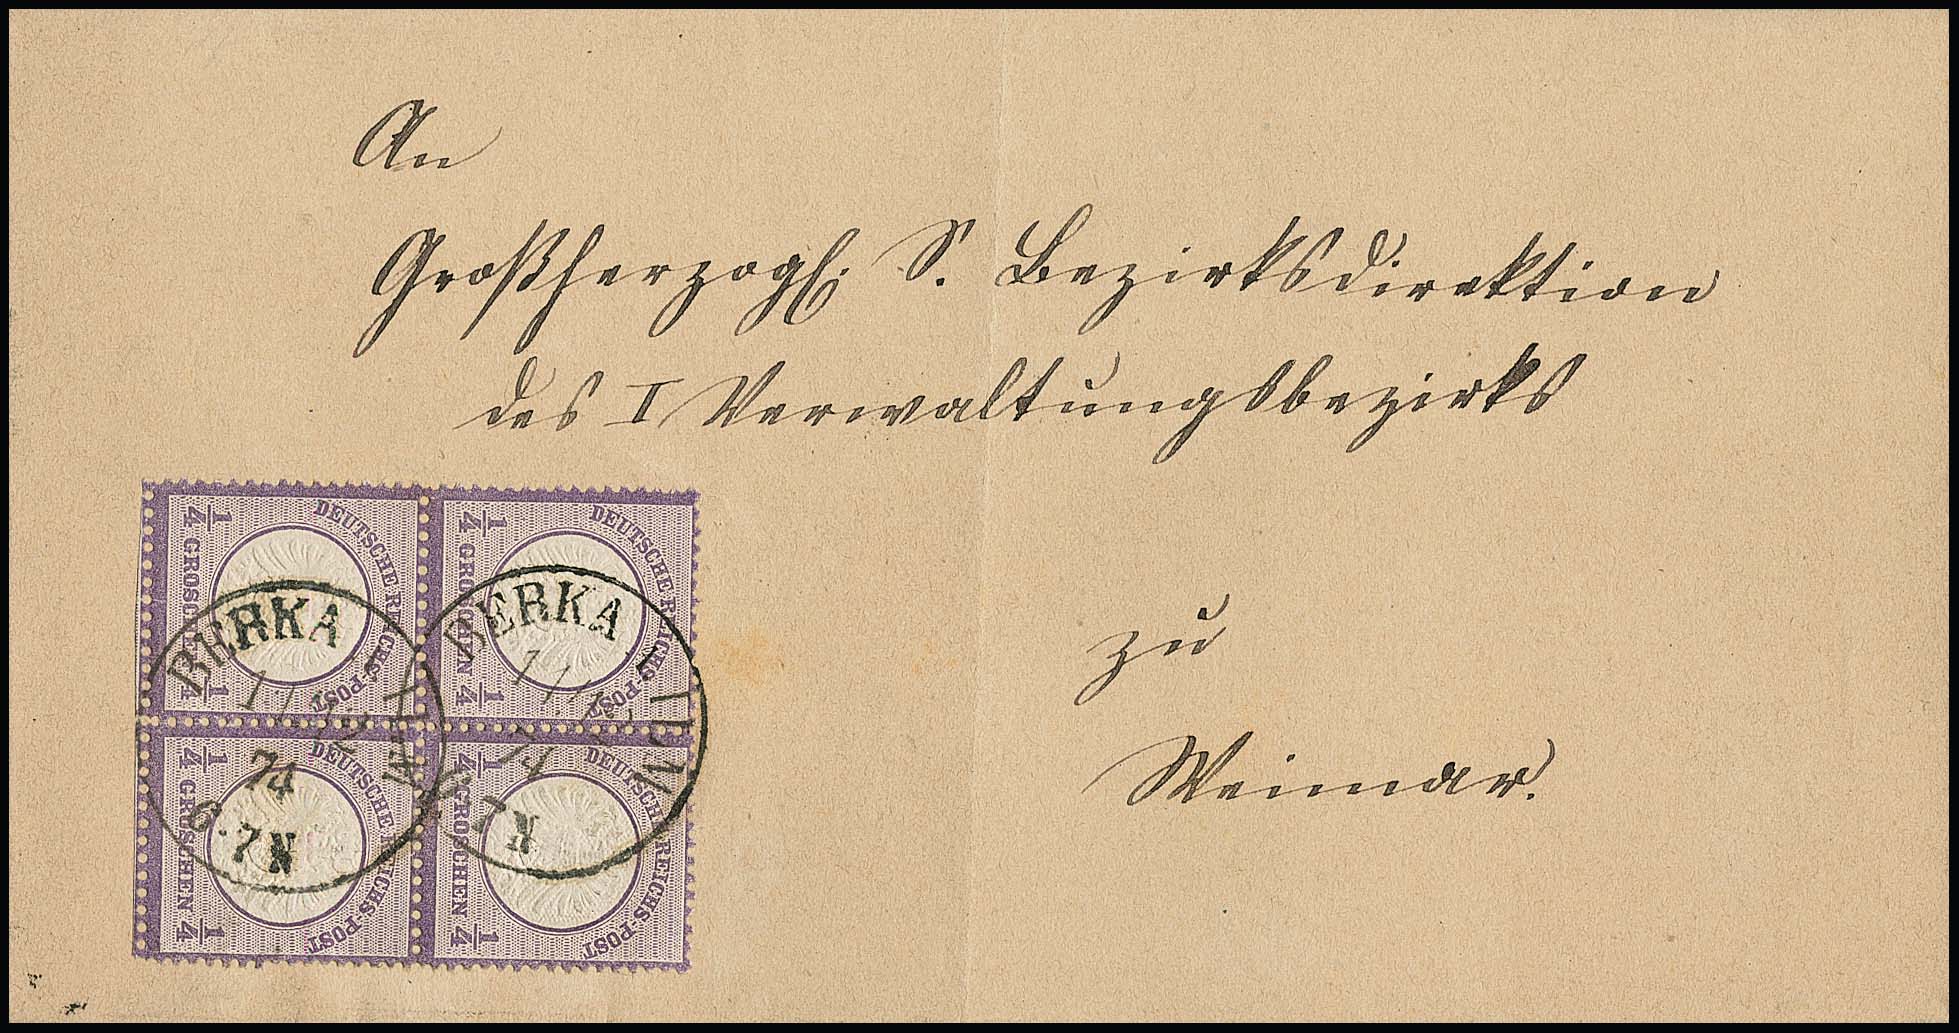 An
Großherzogl. S. Bezirksdirektion
des I Verwaltungsbezirks
zu
Weimar.
DEUTSCHE REICHS-POST
1/4 GROSCHEN 1/4
DEUTSCHE REICHS-POST
1/4 GROSCHEN 1/4
DEUTSCHE REICHS-POST
1/4 GROSCHEN 1/4
DEUTSCHE REICHS-POST
1/4 GROSCHEN 1/4
BERKA
74
6-7N
BERKA
74
6-7N